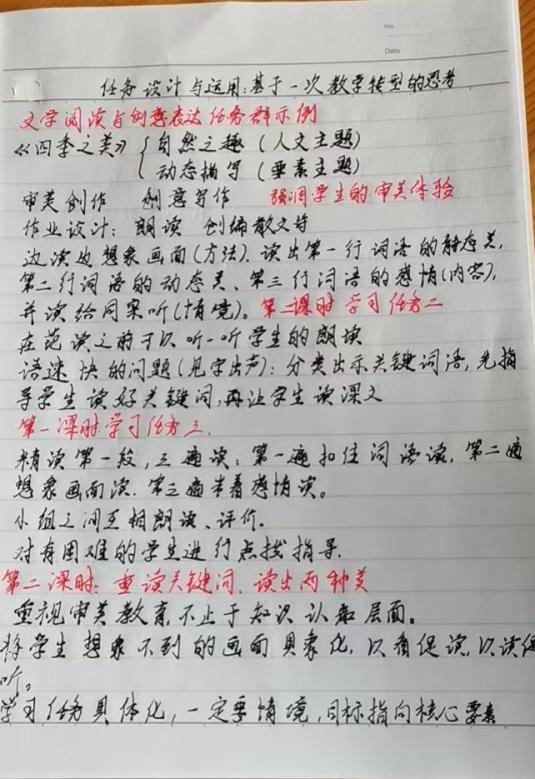 No
Date
任务设计与运用:基于一次教学转型的思考
文学阅读与创意表达任务群示例
《四季之美》{自然之趣(人文主题)
动态描写(要素主题)
审美创作 创意写作 强调学生的审美体验
作业设计: 朗读 创编散文诗
边读边想象画面(方法)、读出第一行词语的静态美,
第二行词语的动态美、第三行词语的感情(内容),
并读给同桌听(情境)。第二课时学习任务二
在范读之前可以听一听学生的朗读
语速快的问题(见字出声):分类出示关键词语,先指
导学生读好关键词,再让学生读课文
第一课时学习任务三、
精读第一段,三遍读:第一遍扣住词语读,第二遍
想象画面读,第三遍带着感情读。
小组之间互相朗读、评价.
对有困难的学生进行点拨指导.
第二课时:重读关键词、读出两种美
重视审美教育,不止于知识认知层面。
将学生想象不到的画面具象化,以看促读,以读促
听。
学习任务具体化,一定要情境,目标指向核心要素